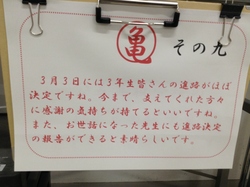 亀 その九
3月3日には3年生皆さんの進路がほぼ
決定ですね。今まで、支えてくれた方々
に感謝の気持ちが持てるといいですね。
また、お世話になった先生にも進路決定
の報告ができると素晴らしいです。